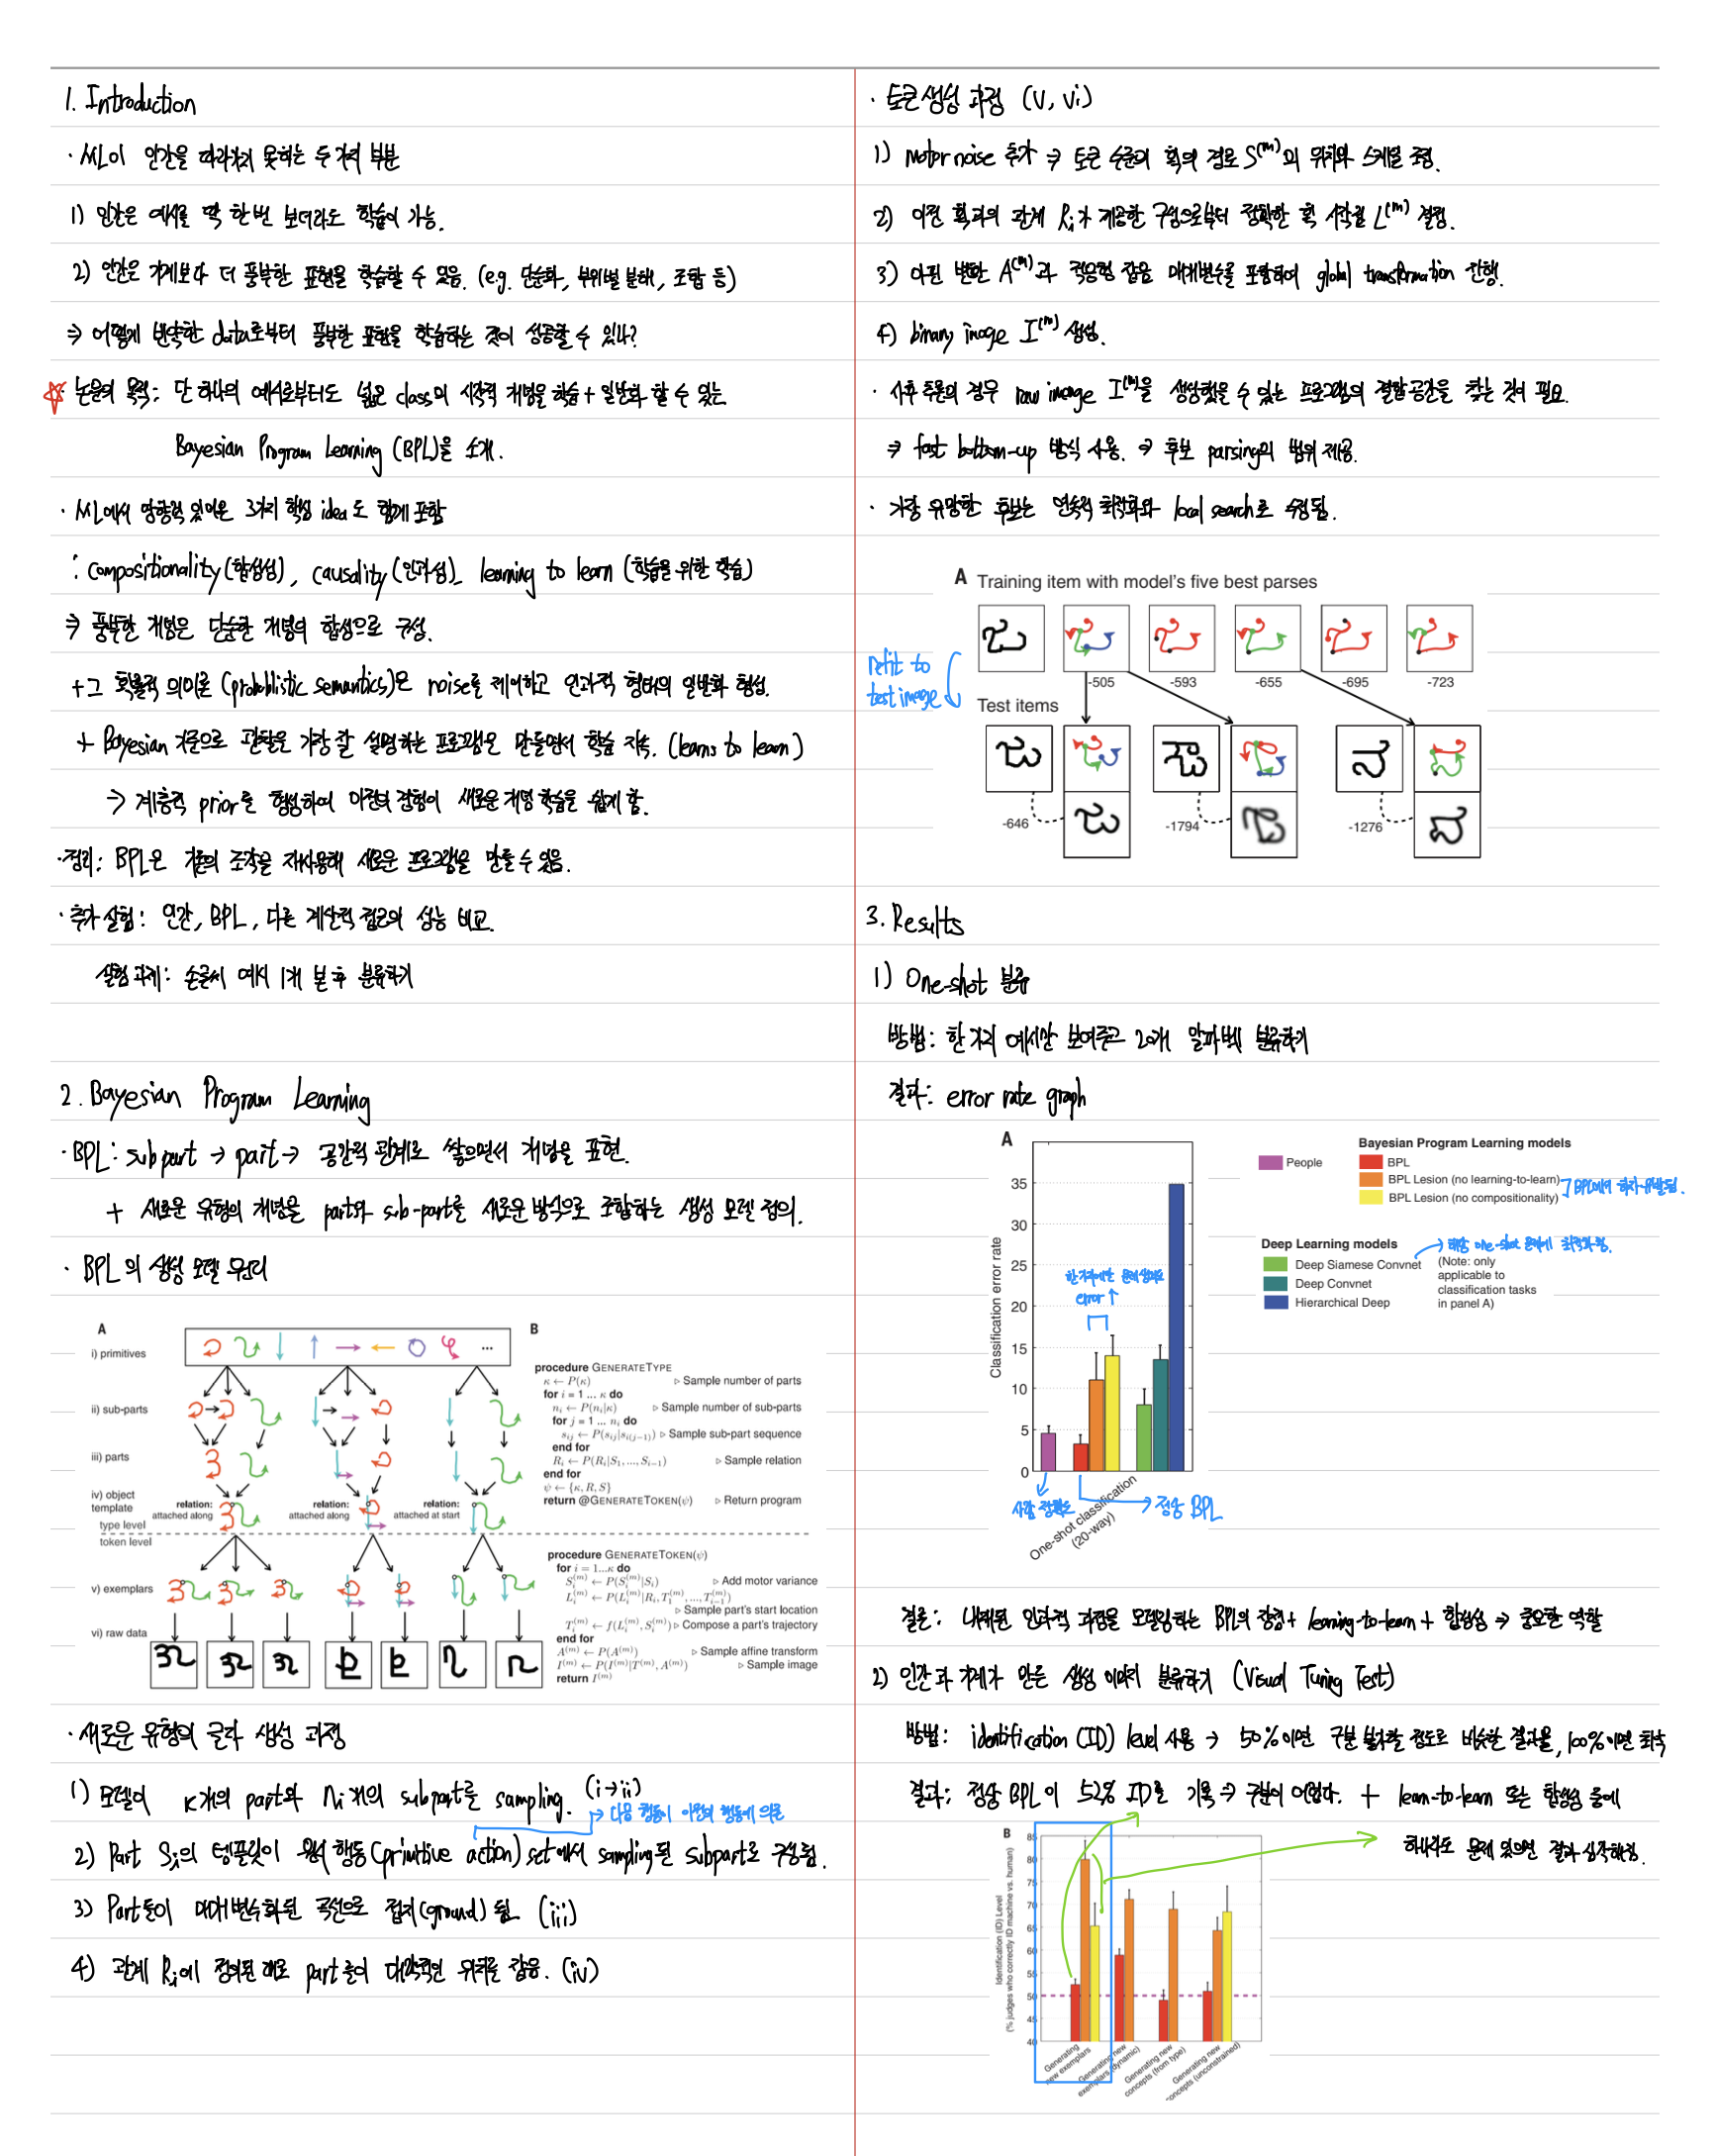 1. Introduction
· ML이 인간을 따라가지 못하는 두 가지 부분
1) 인간은 예시를 딱 한번 보더라도 학습이 가능.
2) 인간은 기계보다 더 풍부한 표현을 학습할 수 있음. (e.g. 단순화, 부위별 분해, 조합 등)
⇒ 어떻게 빈약한 data로부터 풍부한 표현을 학습하는 것이 성공할 수 있나?
☆· 논문의 목적: 단 하나의 예시로부터도 넓은 class의 시각적 개념을 학습 + 일반화 할 수 있는
Bayesian Program Learning (BPL)을 소개.
· ML에서 영향력 있어온 3가지 핵심 idea도 함께 포함
: compositionality (합성성), causality (인과성), learning to learn (학습을 위한 학습)
⇒ 풍부한 개념은 단순한 개념의 합성으로 구성.
+ 그 확률적 의미론 (probablistic semantics)은 noise를 제어하고 인과적 형태의 일반화 형성.
+ Bayesian 기준으로 관찰을 가장 잘 설명하는 프로그램을 만들면서 학습 지속. (learns to learn)
→ 계층적 prior를 형성하여 이전의 경험이 새로운 개념 학습을 쉽게 함.
· 정리: BPL은 기존의 조각을 재사용해 새로운 프로그램을 만들 수 있음.
· 추가 실험: 인간, BPL, 다른 계산적 접근의 성능 비교.
실험 과제: 손글씨 예시 1개 본 후 분류하기
2. Bayesian Program Learning
· BPL: subpart → part → 공간적 관계로 쌓으면서 개념을 표현.
+ 새로운 유형의 개념을 part와 sub-part를 새로운 방식으로 조합하는 생성 모델 정의.
· BPL의 생성 모델 원리
A
i) primitives
...
ii) sub-parts
iii) parts
iv) object template
relation: attached along
relation: attached along
relation: attached at start
type level
token level
v) exemplars
vi) raw data
B
procedure GENERATETYPE
κ ← P(κ) ▷ Sample number of parts
for i = 1 ... κ do
n_i ← P(n_i|κ) ▷ Sample number of sub-parts
for j = 1 ... n_i do
s_ij ← P(s_ij|s_i(j−1)) ▷ Sample sub-part sequence
end for
R_i ← P(R_i|S_1, ..., S_i−1) ▷ Sample relation
end for
ψ ← {κ, R, S}
return @GENERATETOKEN(ψ) ▷ Return program
procedure GENERATETOKEN(ψ)
for i = 1...κ do
S_i^(m) ← P(S_i^(m)|S_i) ▷ Add motor variance
L_i^(m) ← P(L_i^(m)|R_i, T_1^(m), ..., T_i−1^(m))
▷ Sample part's start location
T_i^(m) ← f(L_i^(m), S_i^(m)) ▷ Compose a part's trajectory
end for
A^(m) ← P(A^(m)) ▷ Sample affine transform
I^(m) ← P(I^(m)|T^(m), A^(m)) ▷ Sample image
return I^(m)
· 새로운 유형의 글자 생성 과정
1) 모델이 κ개의 part와 ni개의 subpart를 sampling. (i→ii)
→ 다음 행동이 이전의 행동에 의존
2) Part Si의 템플릿이 원시 행동(primitive action) set에서 sampling된 subpart로 구성됨.
3) Part들이 매개변수화된 곡선으로 접지(ground)됨. (iii)
4) 관계 Ri에 정의된 대로 part들이 대략적인 위치를 잡음. (iv)
· 토큰 생성 과정 (v, vi)
1) Motor noise 추가 ⇒ 토큰 수준의 획의 경로 S^(m)의 위치와 스케일 조정.
2) 이전 획과의 관계 Ri가 제공한 구성으로부터 정확한 획 시작점 L^(m) 결정.
3) 아핀 변환 A^(m)과 적응형 잡음 매개변수를 포함하여 global transformation 진행.
4) binary image I^(m) 생성.
· 사후 추론의 경우 raw image I^(m)을 생성했을 수 있는 프로그램의 결합공간을 찾는 것이 필요.
⇒ fast bottom-up 방식 사용. ⇒ 후보 parsing의 범위 제공.
· 가장 유망한 후보는 연속적 최적화와 local search로 수정됨.
A Training item with model's five best parses
-505 -593 -655 -695 -723
refit to
test image
Test items
-646 -1794 -1276
3. Results
1) One-shot 분류
방법: 한 가지 예시만 보여주고 20개 알파벳 분류하기
결과: error rate graph
A
Classification error rate
35
30
25
20
15
10
5
0
One-shot classification
(20-way)
한 가지에만 문제 생겨도
error ↑
사람 정확도
→ 정상 BPL
People
Bayesian Program Learning models
BPL
BPL Lesion (no learning-to-learn)
BPL Lesion (no compositionality)
Deep Learning models
→ 해당 one-shot 문제에 최적화됨.
Deep Siamese Convnet
Deep Convnet
Hierarchical Deep
(Note: only
applicable to
classification tasks
in panel A)
결론: 내재된 인과적 과정을 모델링하는 BPL의 장점 + learning-to-learn + 합성성 → 중요한 역할
2) 인간과 기계가 만든 생성 이미지 분류하기 (Visual Turing Test)
방법: identification (ID) level 사용 → 50%이면 구분 불가할 정도로 비슷한 결과물, 100%이면 최악
결과: 정상 BPL이 52% ID를 기록 ⇒ 구분이 어렵다. + learn-to-learn 또는 합성성 둘에
하나라도 문제 있으면 결과 심각해짐.
B
Identification (ID) Level
(% judges who correctly ID machine vs. human)
85
80
75
70
65
60
55
50
45
40
Generating
new exemplars
Generating new
exemplars (dynamic)
Generating new
concepts (from type)
Generating new
concepts (unconstrained)